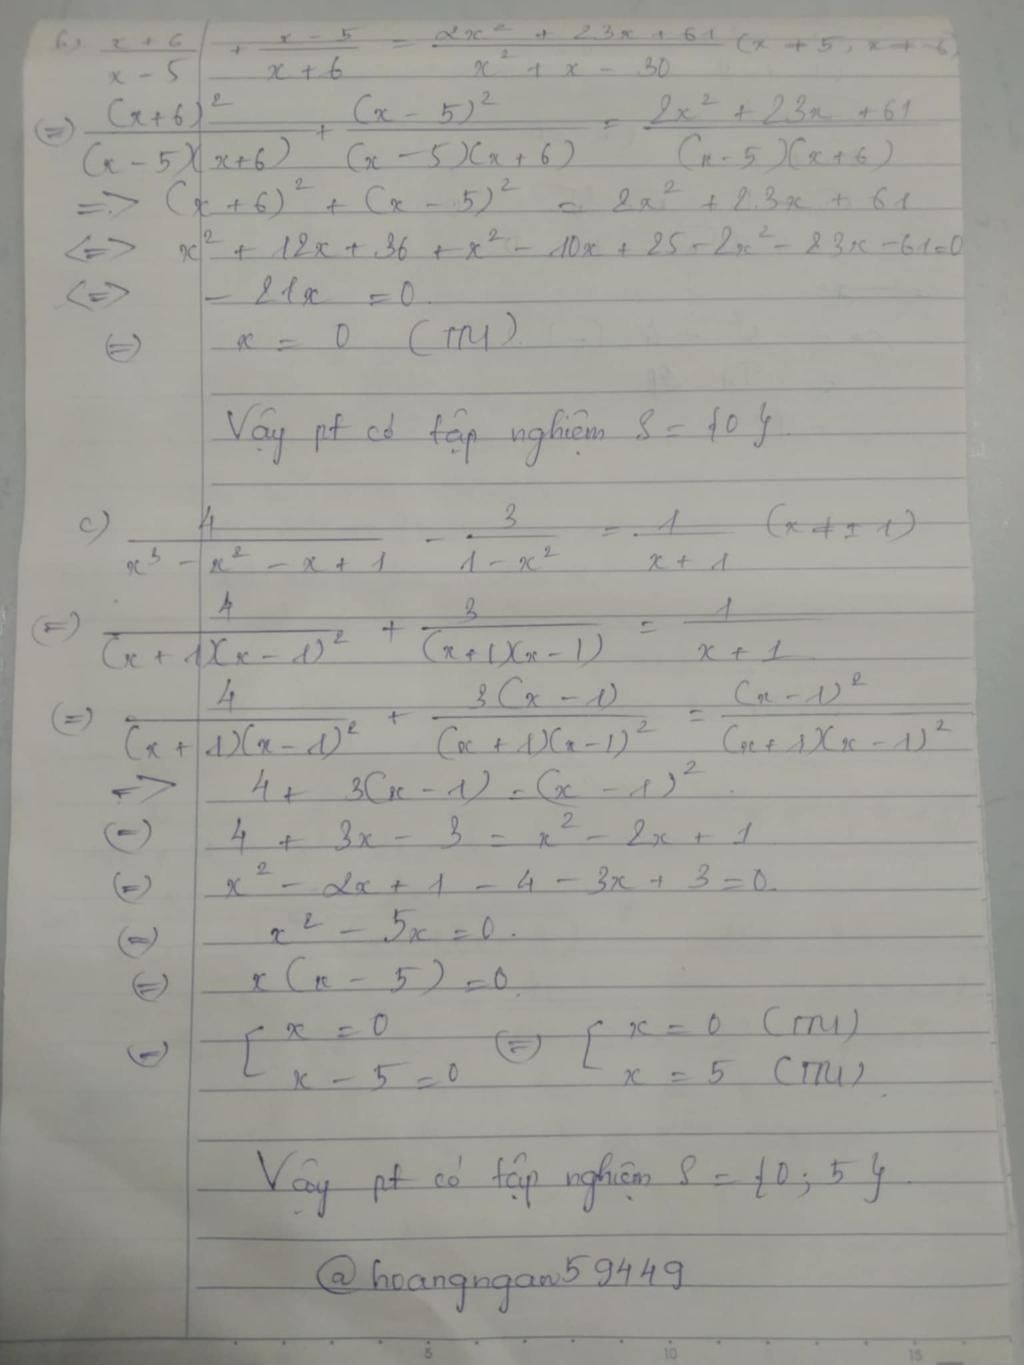 b, (x + 6)/(x - 5) + (x - 5)/(x + 6) = (2x² + 23x + 61)/(x² + x - 30) (x ≠ 5, x ≠ -6)
(=) (x+6)²/((x - 5)(x+6)) + (x - 5)²/((x - 5)(x + 6)) = (2x² + 23x + 61)/((x - 5)(x + 6))
=> (x + 6)² + (x - 5)² = 2x² + 23x + 61
<=> x² + 12x + 36 + x² - 10x + 25 - 2x² - 23x - 61 = 0
<=> - 21x = 0
(=) x = 0 (TM)
Vậy pt có tập nghiệm S = {0}.
c) 4/(x³ - x² - x + 1) - 3/(1 - x²) = 1/(x + 1) (x ≠ ± 1)
(=) 4/((x + 1)(x - 1)²) + 3/((x+1)(x - 1)) = 1/(x + 1)
(=) 4/((x + 1)(x - 1)²) + 3(x - 1)/((x + 1)(x - 1)²) = (x - 1)²/((x + 1)(x - 1)²)
=> 4 + 3(x - 1) = (x - 1)².
(=) 4 + 3x - 3 = x² - 2x + 1
(=) x² - 2x + 1 - 4 - 3x + 3 = 0.
(=) x² - 5x = 0.
(=) x (x - 5) = 0.
(=) [ x = 0 (=) [ x = 0 (TM)
x - 5 = 0 x = 5 (TM)
Vậy pt có tập nghiệm S = {0; 5}.
@hoangngan59449
5 10 15